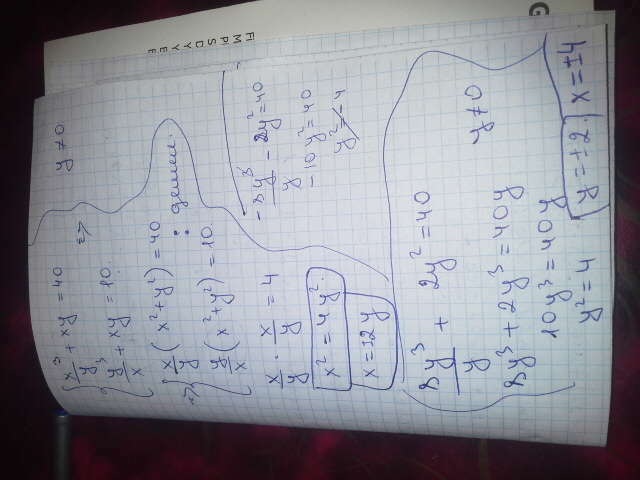 x³/y + xy = 40
y³/x + xy = 10
=>
y ≠ 0
=>
x/y (x² + y²) = 40
y/x (x² + y²) = 10
: делим.
x/y · x/y = 4
x² = 4y²
x = ±2y
-8y³/y - 2y² = 40
-10y² = 40
y² = -4
8y³/y + 2y² = 40
y ≠ 0
8y³ + 2y³ = 40y
10y³ = 40y
y² = 4
y = ±2.
x = ±4